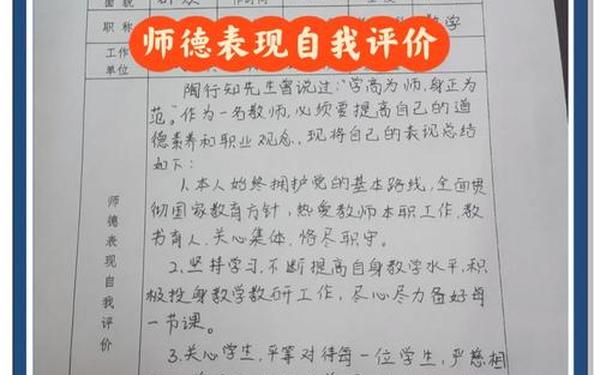 面貌
职称
师德表现自我评价
数学
工作
单位
陶行知先生曾说过:“学高为师,身正为
范。”作为一名教师,必须要提高自己的道
德素养和职业观念,现将自己的表现总结
如下:
1.本人始终拥护党的基本路线,全面贯
彻国家教育方针,热爱教师本职工作,教
书育人,关心集体,恪尽职守。
2.坚持学习,不断提高自身教学水平,积
极投身教学教研工作,尽心尽力备好每
一节课。
3.关心学生,平等对待每一位学生,严慈相
师德表现自我评价